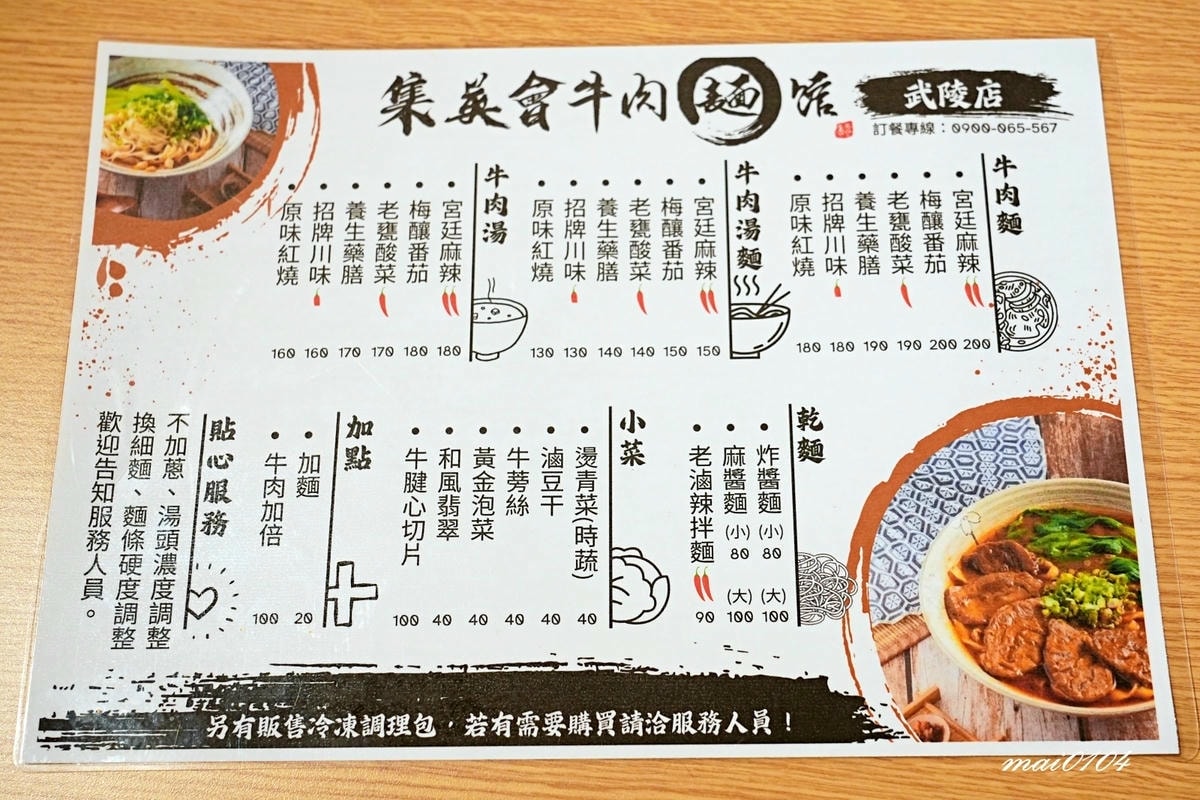 集英會牛肉麵館
武陵店
訂餐專線：0900-065-567
牛肉麵
• 宮廷麻辣 200
• 梅釀番茄 200
• 老甕酸菜 190
• 養生藥膳 190
• 招牌川味 180
• 原味紅燒 180
牛肉湯麵
• 宮廷麻辣 150
• 梅釀番茄 150
• 老甕酸菜 140
• 養生藥膳 140
• 招牌川味 130
• 原味紅燒 130
牛肉湯
• 宮廷麻辣 180
• 梅釀番茄 180
• 老甕酸菜 170
• 養生藥膳 170
• 招牌川味 160
• 原味紅燒 160
乾麵
• 炸醬麵 (小) 80 (大) 100
• 麻醬麵 (小) 80 (大) 100
• 老滷辣拌麵 90
小菜
• 燙青菜(時蔬) 40
• 滷豆干 40
• 牛蒡絲 40
• 黃金泡菜 40
• 和風翡翠 40
• 牛腱心切片 100
加點
• 加麵 20
• 牛肉加倍 100
貼心服務
不加蔥、湯頭濃度調整
換細麵、麵條硬度調整
歡迎告知服務人員。
另有販售冷凍調理包，若有需要購買請洽服務人員！
mai0104